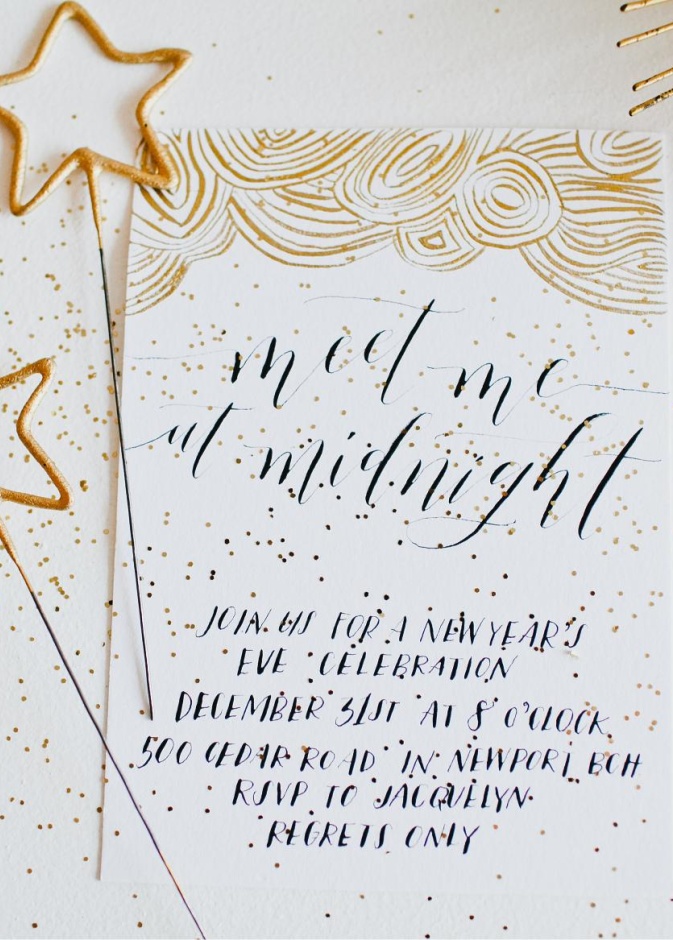 meet me
at midnight
JOIN US FOR A NEW YEAR'S
EVE CELEBRATION
DECEMBER 31ST AT 8 O'CLOCK
500 CEDAR ROAD IN NEWPORT BCH
RSVP TO JACQUELYN
REGRETS ONLY